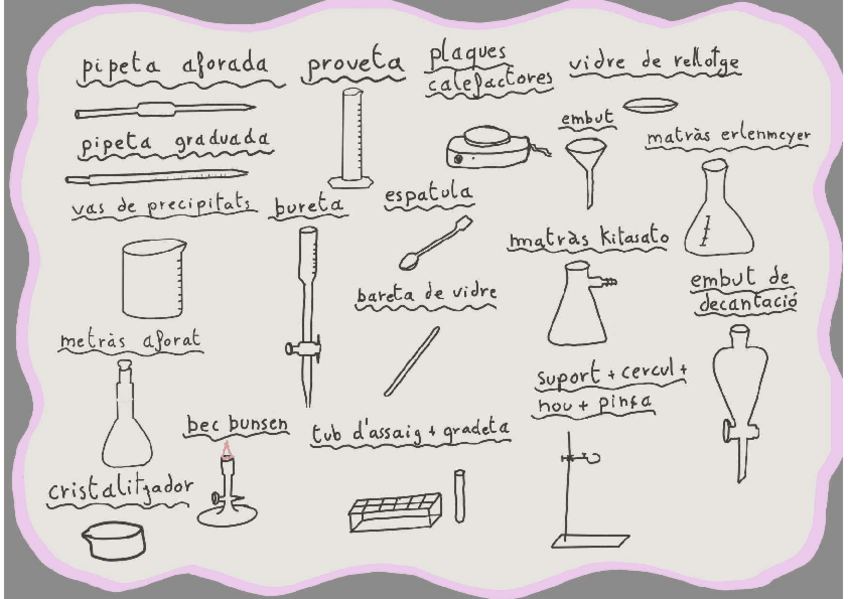 pipeta aforada
proveta
plaques
calefactores
vidre de rellotge
pipeta graduada
embut
matràs erlenmeyer
vas de precipitats
bureta
espatula
matràs kitasato
bareta de vidre
embut de
decantació
metràs aforat
suport + cercul +
nou + pinça
bec bunsen
tub d'assaig + gradeta
cristalitzador